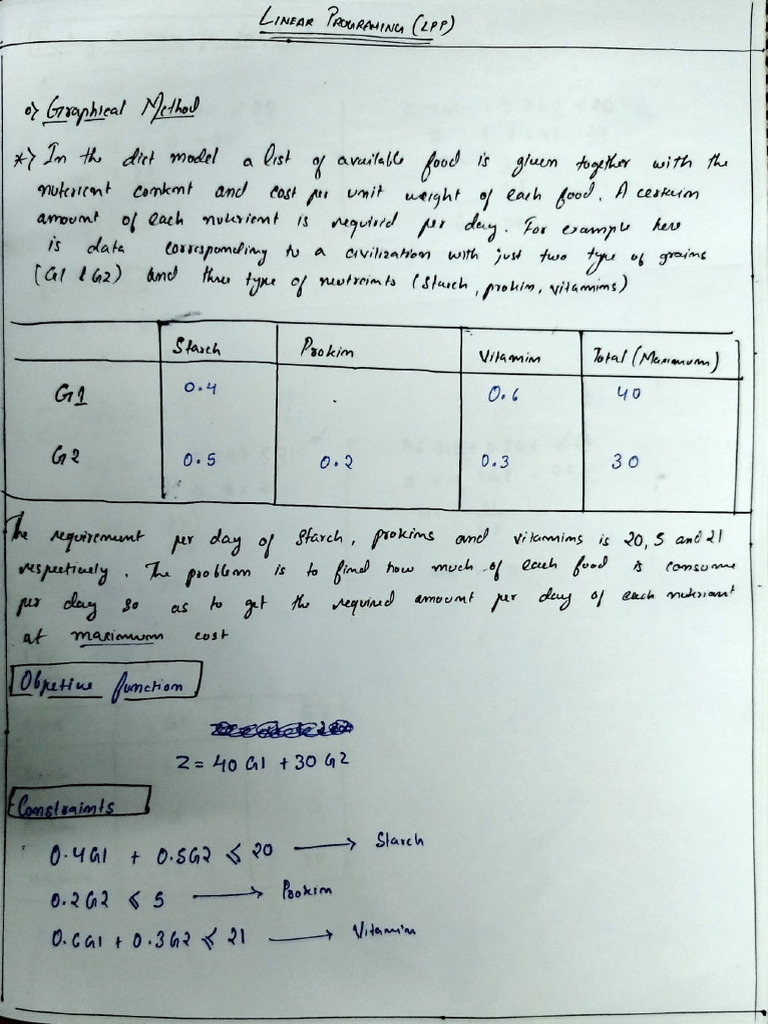 LINEAR PROGRAMING (LPP)
o) Graphical Method
*) In the diet model a list of available food is given together with the
nuterient content and cost per unit weight of each food. A certain
amount of each nuterient is required per day. For example here
is data corresponding to a civilization with just two type of grains
(G1 & G2) and three type of neutraints (starch, protein, vitamims)
Starch Protein Vitamin Total (Maximum)
G1 0.4 . 0.6 40
G2 0.5 0.2 0.3 30
The requirement per day of starch, proteins and vitamins is 20, 5 and 21
respectively. The problem is to find how much of each food is consume
per day so as to get the required amount per day of each nutriant
at maximum cost
Objective function
Z = 40 G1 + 30 G2
Constraints
0.4G1 + 0.5G2 ≤ 20 → Starch
0.2G2 ≤ 5 → Protein
0.6G1 + 0.3G2 ≤ 21 → Vitamin